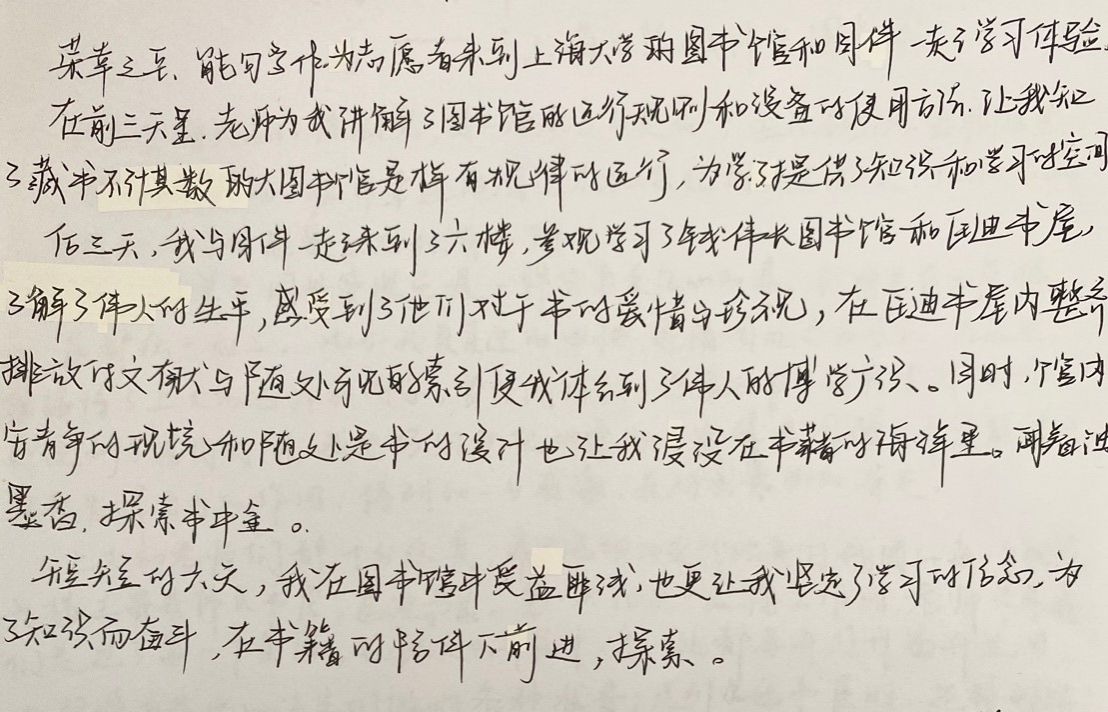 荣幸之至、能身作为志愿者来到上海大学的图书馆和同伴一起学习体验。
在前三天里.老师为我讲解了图书馆的运行规则和设备的使用方法.让我知
了藏书不计其数的大图书馆是样有规律的运行,为学子提供了知识和学习的空间
后三天,我与同伴一起来到了六楼,参观学习了钱伟长图书馆和匡迪书屋,
了解了伟人的生平,感受到了他们对于书的爱惜与珍视,在匡迪书屋内整齐
排放的文献与随处可见的索引使我体会到了伟人的博学广识。同时,馆内
安静的环境和随处是书的设计也让我浸没在书籍的海洋里。闻着油
墨香.探索书中金。
短短的六天,我在图书馆中受益匪浅,也更让我坚定了学习的信念,为
了知识而奋斗,在书籍的陪伴下前进,探索。